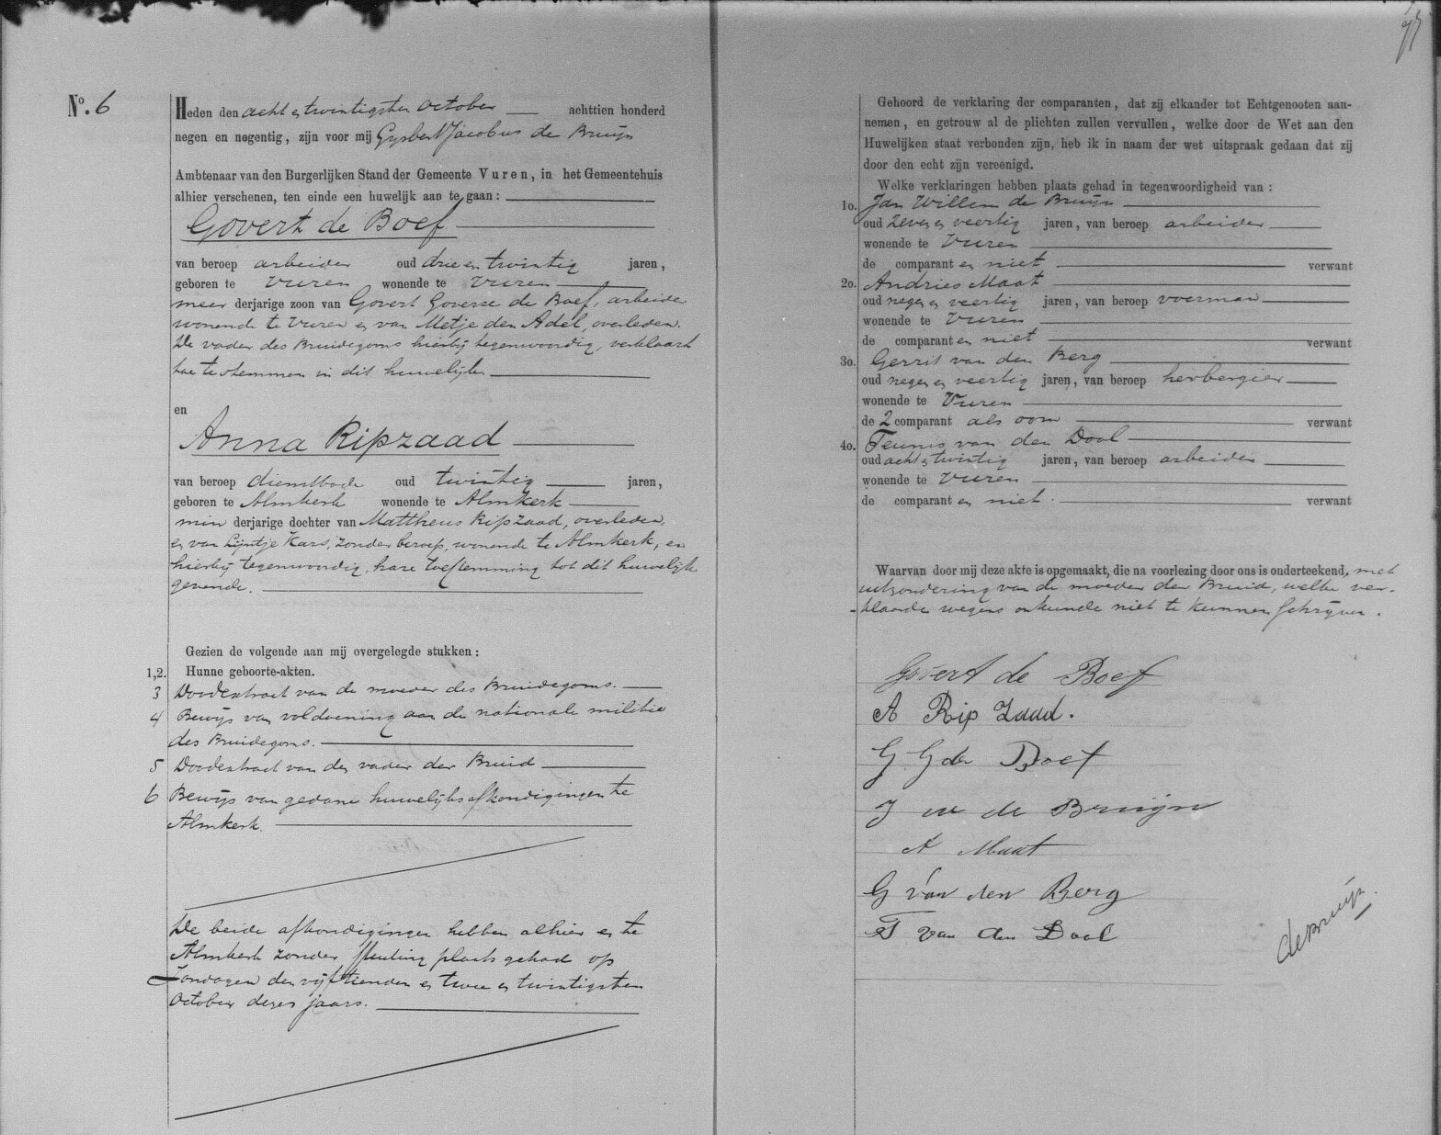 No. 6
Heden den acht en twintigsten October achttien honderd
negen en negentig, zijn voor mij Gysbert Jacobus de Bruijn
Ambtenaar van den Burgerlijken Stand der Gemeente Vuren, in het Gemeentehuis
alhier verschenen, ten einde een huwelijk aan te gaan:
Govert de Boef
van beroep arbeider oud drie en twintig jaren,
geboren te Vuren wonende te Vuren
meer derjarige zoon van Govert Goverse de Boef, arbeider
wonende te Vuren en van Metje den Adel, overleden.
De vader des Bruidegoms hierbij tegenwoordig, verklaart
toe te stemmen in dit huwelijk
en
Anna Ripzaad
van beroep dienstbode oud twintig jaren,
geboren te Almkerk wonende te Almkerk
min derjarige dochter van Mattheus Ripzaad, overleden,
en van Lijntje Kars, zonder beroep, wonende te Almkerk, en
hierbij tegenwoordig, hare toestemming tot dit huwelijk
gevende.
Gezien de volgende aan mij overgelegde stukken:
1,2. Hunne geboorte-akten.
3 Doodextract van de moeder des Bruidegoms.
4 Bewijs van voldoening aan de nationale militie
des Bruidegoms.
5 Doodextract van den vader der Bruid
6 Bewijs van gedane huwelijksafkondigingen te
Almkerk.
De beide afkondigingen hebben alhier en te
Almkerk zonder stuiting plaats gehad op
Zondagen den vijftienden en twee en twintigsten
October dezes jaars.
Gehoord de verklaring der comparanten, dat zij elkander tot Echtgenooten aan-
nemen, en getrouw al de plichten zullen vervullen, welke door de Wet aan den
Huwelijken staat verbonden zijn, heb ik in naam der wet uitspraak gedaan dat zij
door den echt zijn vereenigd.
Welke verklaringen hebben plaats gehad in tegenwoordigheid van:
1o. Jan Willem de Bruijn
oud zeven en veertig jaren, van beroep arbeider
wonende te Vuren
de comparanten niet verwant
2o. Andries Maat
oud negen en veertig jaren, van beroep voerman
wonende te Vuren
de comparanten niet verwant
3o. Gerrit van den Berg
oud negen en veertig jaren, van beroep herbergier
wonende te Vuren
de 2 comparant als oom verwant
4o. Teunis van den Dool
oud acht en twintig jaren, van beroep arbeider
wonende te Vuren
de comparanten niet verwant
Waarvan door mij deze akte is opgemaakt, die na voorlezing door ons is onderteekend, met
uitzondering van de moeder der Bruid, welke ver-
klaarde wegens onkunde niet te kunnen schrijven.
Govert de Boef
A Rip Zaad.
G G de Boef
J W de Bruijn
A Maat
G van den Berg
T van den Dool
deBruijn.